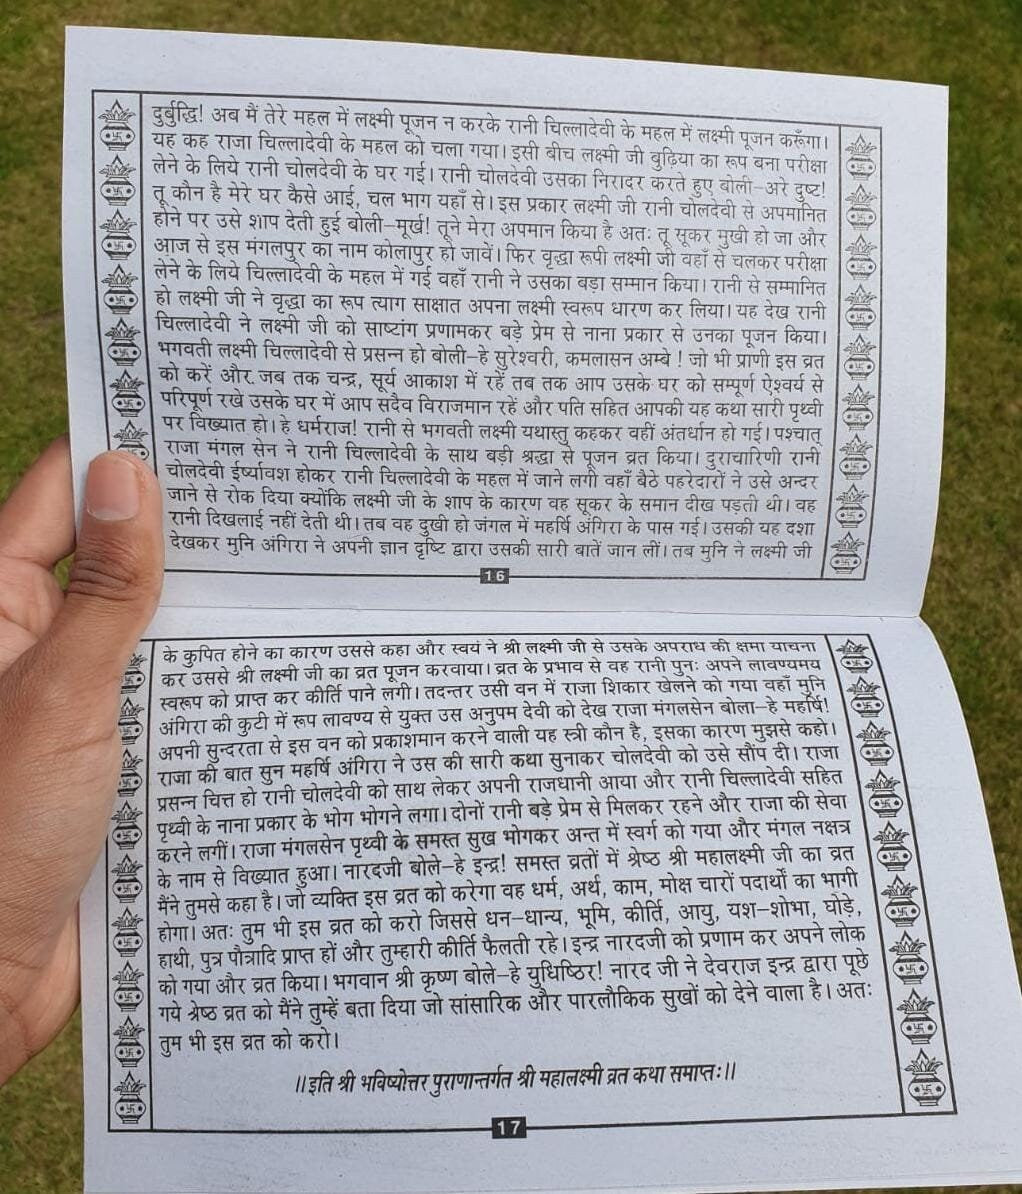 दुर्बुद्धि! अब मैं तेरे महल में लक्ष्मी पूजन न करके रानी चिल्लादेवी के महल में लक्ष्मी पूजन करूँगा।
यह कह राजा चिल्लादेवी के महल को चला गया। इसी बीच लक्ष्मी जी बुढ़िया का रूप बना परीक्षा
लेने के लिये रानी चोलदेवी के घर गई। रानी चोलदेवी उसका निरादर करते हुए बोली-अरे दुष्ट!
तू कौन है मेरे घर कैसे आई, चल भाग यहाँ से। इस प्रकार लक्ष्मी जी रानी चोलदेवी से अपमानित
होने पर उसे शाप देती हुई बोली-मूर्ख! तूने मेरा अपमान किया है अतः तू सूकर मुखी हो जा और
आज से इस मंगलपुर का नाम कोलापुर हो जावें। फिर वृद्धा रूपी लक्ष्मी जी वहाँ से चलकर परीक्षा
लेने के लिये चिल्लादेवी के महल में गई वहाँ रानी ने उसका बड़ा सम्मान किया। रानी से सम्मानित
हो लक्ष्मी जी ने वृद्धा का रूप त्याग साक्षात अपना लक्ष्मी स्वरूप धारण कर लिया। यह देख रानी
चिल्लादेवी ने लक्ष्मी जी को साष्टांग प्रणामकर बड़े प्रेम से नाना प्रकार से उनका पूजन किया।
भगवती लक्ष्मी चिल्लादेवी से प्रसन्न हो बोली-हे सुरेश्वरी, कमलासन अम्बे ! जो भी प्राणी इस व्रत
को करें और जब तक चन्द्र, सूर्य आकाश में रहें तब तक आप उसके घर को सम्पूर्ण ऐश्वर्य से
परिपूर्ण रखे उसके घर में आप सदैव विराजमान रहें और पति सहित आपकी यह कथा सारी पृथ्वी
पर विख्यात हो। हे धर्मराज! रानी से भगवती लक्ष्मी यथास्तु कहकर वहीं अंतर्धान हो गई। पश्चात्
राजा मंगल सेन ने रानी चिल्लादेवी के साथ बड़ी श्रद्धा से पूजन व्रत किया। दुराचारिणी रानी
चोलदेवी ईर्ष्यावश होकर रानी चिल्लादेवी के महल में जाने लगी वहाँ बैठे पहरेदारों ने उसे अन्दर
जाने से रोक दिया क्योंकि लक्ष्मी जी के शाप के कारण वह सूकर के समान दीख पड़ती थी। वह
रानी दिखलाई नहीं देती थी। तब वह दुखी हो जंगल में महर्षि अंगिरा के पास गई। उसकी यह दशा
देखकर मुनि अंगिरा ने अपनी ज्ञान दृष्टि द्वारा उसकी सारी बातें जान लीं। तब मुनि ने लक्ष्मी जी
16
के कुपित होने का कारण उससे कहा और स्वयं ने श्री लक्ष्मी जी से उसके अपराध की क्षमा याचना
कर उससे श्री लक्ष्मी जी का व्रत पूजन करवाया। व्रत के प्रभाव से वह रानी पुनः अपने लावण्यमय
स्वरूप को प्राप्त कर कीर्ति पाने लगी। तदन्तर उसी वन में राजा शिकार खेलने को गया वहाँ मुनि
अंगिरा की कुटी में रूप लावण्य से युक्त उस अनुपम देवी को देख राजा मंगलसेन बोला-हे महर्षि!
अपनी सुन्दरता से इस वन को प्रकाशमान करने वाली यह स्त्री कौन है, इसका कारण मुझसे कहो।
राजा की बात सुन महर्षि अंगिरा ने उस की सारी कथा सुनाकर चोलदेवी को उसे सौंप दी। राजा
प्रसन्न चित्त हो रानी चोलदेवी को साथ लेकर अपनी राजधानी आया और रानी चिल्लादेवी सहित
पृथ्वी के नाना प्रकार के भोग भोगने लगा। दोनों रानी बड़े प्रेम से मिलकर रहने और राजा की सेवा
करने लगीं। राजा मंगलसेन पृथ्वी के समस्त सुख भोगकर अन्त में स्वर्ग को गया और मंगल नक्षत्र
के नाम से विख्यात हुआ। नारदजी बोले-हे इन्द्र! समस्त व्रतों में श्रेष्ठ श्री महालक्ष्मी जी का व्रत
मैंने तुमसे कहा है। जो व्यक्ति इस व्रत को करेगा वह धर्म, अर्थ, काम, मोक्ष चारों पदार्थों का भागी
होगा। अतः तुम भी इस व्रत को करो जिससे धन-धान्य, भूमि, कीर्ति, आयु, यश-शोभा, घोड़े,
हाथी, पुत्र पौत्रादि प्राप्त हों और तुम्हारी कीर्ति फैलती रहे। इन्द्र नारदजी को प्रणाम कर अपने लोक
को गया और व्रत किया। भगवान श्री कृष्ण बोले-हे युधिष्ठिर! नारद जी ने देवराज इन्द्र द्वारा पूछे
गये श्रेष्ठ व्रत को मैंने तुम्हें बता दिया जो सांसारिक और पारलौकिक सुखों को देने वाला है। अतः
तुम भी इस व्रत को करो।
।।इति श्री भविष्योत्तर पुराणान्तर्गत श्री महालक्ष्मी व्रत कथा समाप्तः।।
17